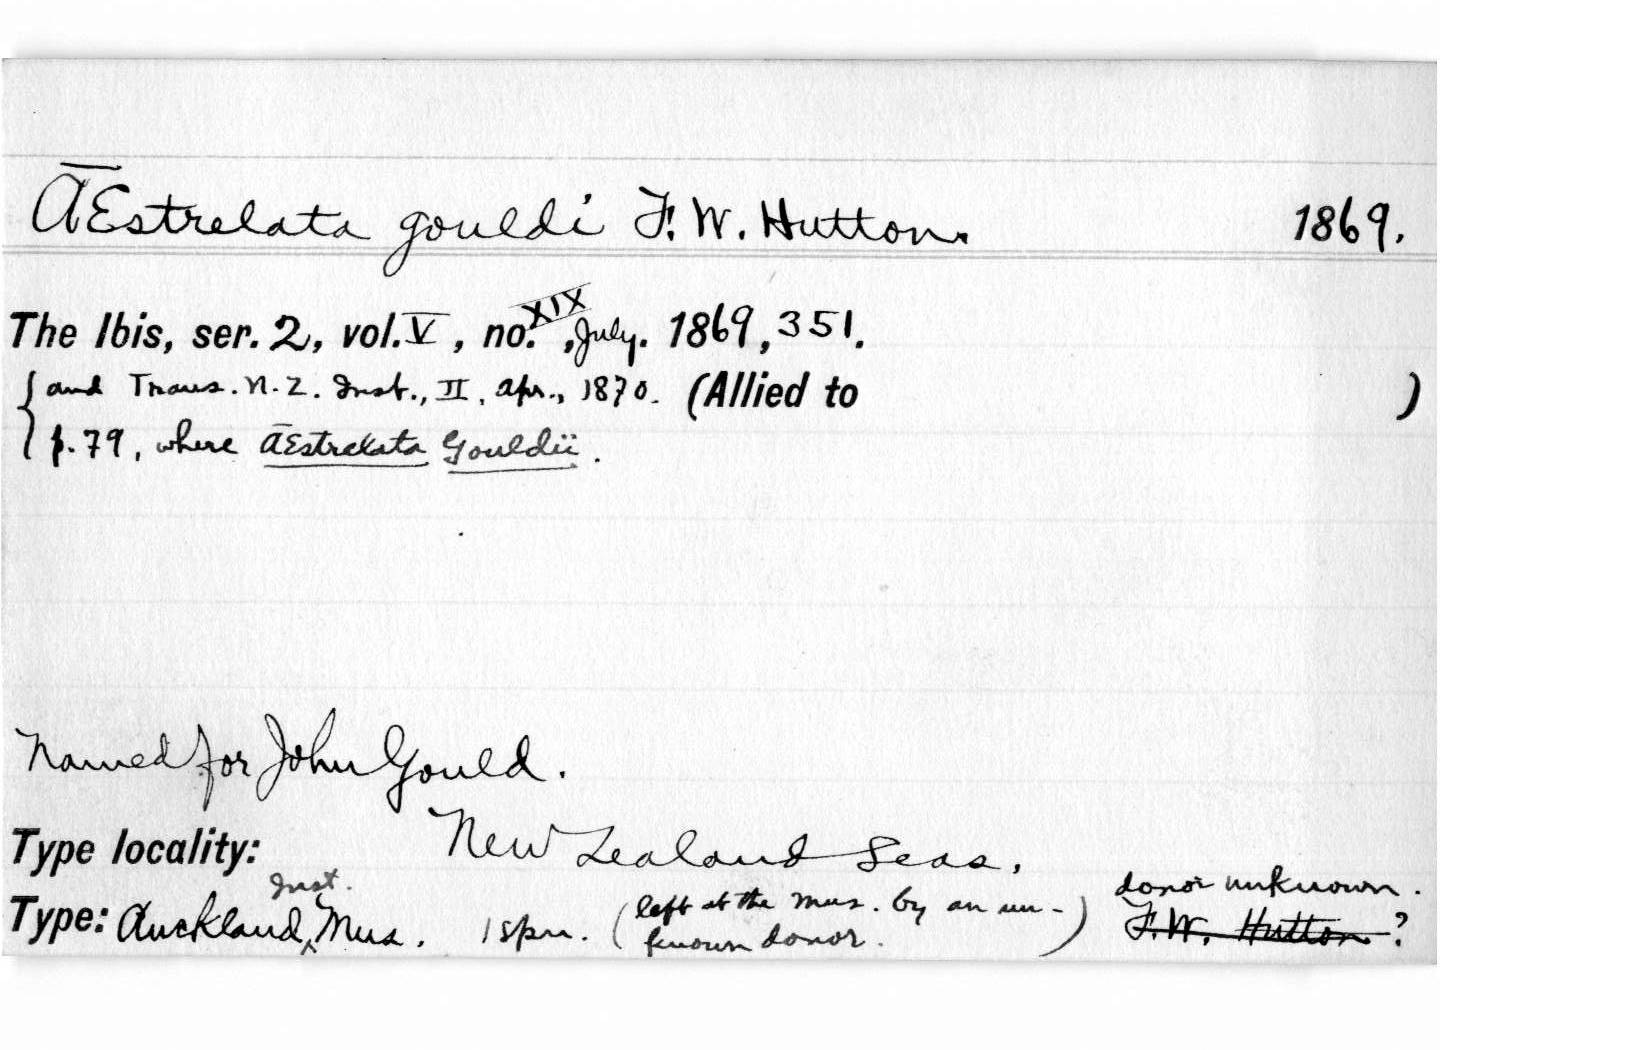 AEstrelata gouldi F. W. Hutton. 1869.
The Ibis, ser. 2, vol. V, no. XIX, July. 1869, 351.
and Trans. N. Z. Inst., II, Apr., 1870. (Allied to )
p. 79, where AEstrelata Gouldii.
Named for John Gould.
Type locality: New Zealand Seas.
Type: Auckland Inst. Mus. 1 spn. (left at the Mus. by an un-
known donor. ) donor unknown.
F. W. Hutton ?